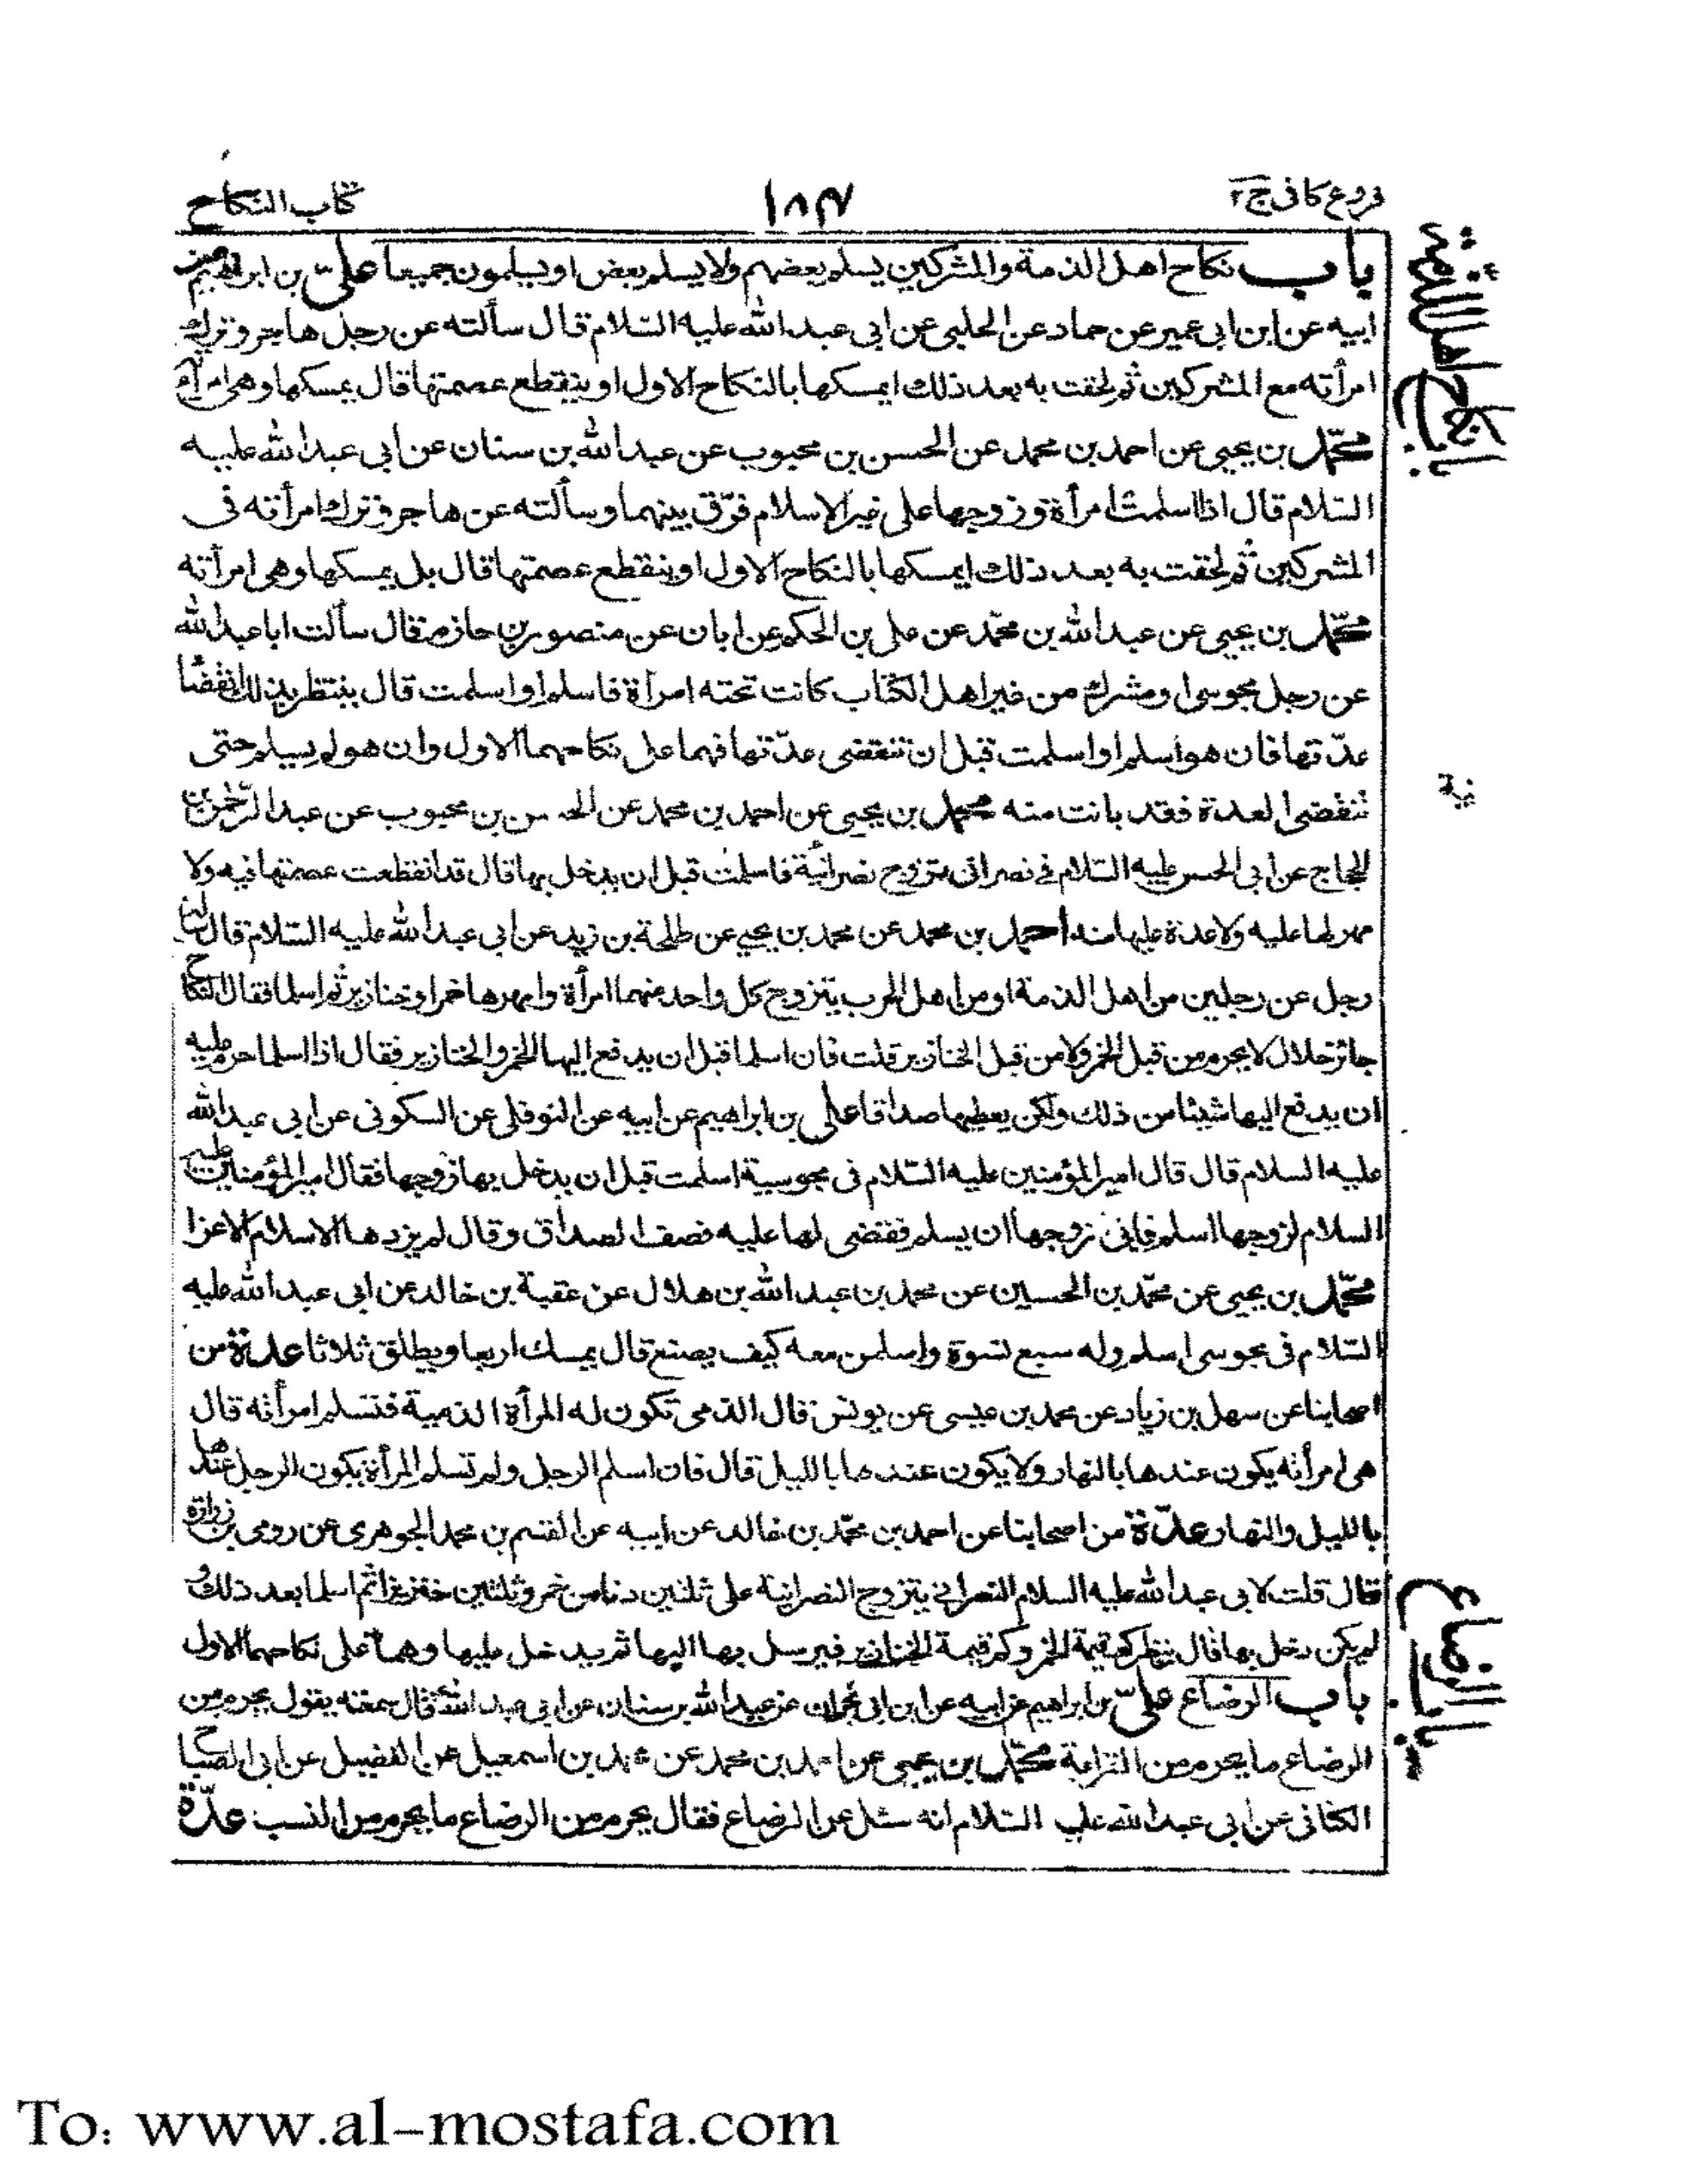 فروع كافى ج٢
١٨٧
كتاب النكاح
باب نكاح اهل الذمة والمشركين يسلم بعضهم ولا يسلم بعض او يسلمون جميعا علىّ بن ابراهيم عن
ابيه عن ابن ابى عمير عن حماد عن الحلبى عن ابى عبد الله عليه السّلام قال سألته عن رجل هاجر وترك
امرأته مع المشركين ثم لحقت به بعد ذلك ايمسكها بالنكاح الاول او ينقطع عصمتها قال يمسكها وهى امرأته
محمّد بن يحيى عن احمد بن محمد عن الحسن بن محبوب عن عبد الله بن سنان عن ابى عبد الله عليه
السّلام قال اذا اسلمت امرأة وزوجها على غير الاسلام فرّق بينهما وسألته عن هاجر وترك امرأته فى
المشركين ثم لحقت به بعد ذلك ايمسكها بالنكاح الاول او ينقطع عصمتها قال بل يمسكها وهى امرأته
محمّد بن يحيى عن عبد الله بن محمّد عن على بن الحكم عن ابان عن منصور بن حازم قال سألت ابا عبد الله
عن رجل مجوسى او مشرك من غير اهل الكتاب كانت تحته امرأة فاسلم او اسلمت قال ينتظر بذلك انقضا
عدّتها فان هو اسلم او اسلمت قبل ان تنقضى عدّتها فهما على نكاحهما الاول وان هو لم يسلم حتى
تنقضى العدة فقد بانت منه محمد بن يحيى عن احمد بن محمد عن الحسن بن محبوب عن عبد الرّحمن بن
الحجاج عن ابى الحسن عليه السّلام فى نصرانى تزوج نصرانيّة فاسلمت قبل ان يدخل بها قال قد انقطعت عصمتها فيه ولا
مهر لها عليه ولا عدة عليها منه احمد بن محمد عن محمد بن يحيى عن طلحة بن زيد عن ابى عبد الله عليه السّلام قال
رجل عن رجلين من اهل الذمة او من اهل الحرب يتزوج كل واحد منهما امرأة وامهرها خمرا وخنازير ثم اسلما فقال النكاح
جائز حلال لا يحرم من قبل الخمر ولا من قبل الخنازير قلت فان اسلما قبل ان يدفع اليها الخمر والخنازير فقال اذا اسلما حرم عليه
ان يدفع اليها شيئا من ذلك ولكن يعطيها صداقا على بن ابراهيم عن ابيه عن النوفلى عن السكونى عن ابى عبد الله
عليه السلام قال قال امير المؤمنين عليه السّلام فى مجوسية اسلمت قبل ان يدخل بها زوجها فقال امير المؤمنين عليه
السلام لزوجها اسلم فابى زوجها ان يسلم فقضى لها عليه نصف الصداق وقال لم يزدها الاسلام الا عزا
محمّد بن يحيى عن محمّد بن الحسين عن محمد بن عبد الله بن هلال عن عقبة بن خالد عن ابى عبد الله عليه
السّلام فى مجوسى اسلم وله سبع نسوة واسلمن معه كيف يصنع قال يمسك اربعا ويطلق ثلاثا عدة من
اصحابنا عن سهل بن زياد عن محمد بن عيسى عن يونس قال الذمى تكون له المرأة الذمية فتسلم امرأته قال
هى امرأته يكون عندها بالنهار ولا يكون عندها بالليل قال فان اسلم الرجل ولم تسلم المرأة يكون الرجل عندها
بالليل والنهار عدّة من اصحابنا عن احمد بن محمّد بن خالد عن ابيه عن القسم بن محمد الجوهرى عن رومى بن زرارة
قال قلت لابى عبد الله عليه السلام النصرانى يتزوج النصرانية على ثلثين دنا من خمر وثلثين خنزيرا ثم اسلما بعد ذلك و
لم يكن دخل بها قال ينظر كم قيمة الخمر وكم قيمة الخنازير فيرسل بها اليها ثم يدخل عليها وهما على نكاحهما الاول
باب الرضاع علىّ بن ابراهيم عن ابيه عن ابن ابى نجران عن عبد الله بن سنان عن ابى عبد الله قال سمعته يقول يحرم من
الرضاع ما يحرم من القرابة محمّد بن يحيى عن احمد بن محمد عن محمد بن اسمعيل عن الفضيل عن ابى الصباح
الكنانى عن ابى عبد الله عليه السّلام انه سئل عن الرضاع فقال يحرم من الرضاع ما يحرم من النسب عدّة
باب نكاح اهل الذمة
باب الرضاع
To: www.al-mostafa.com